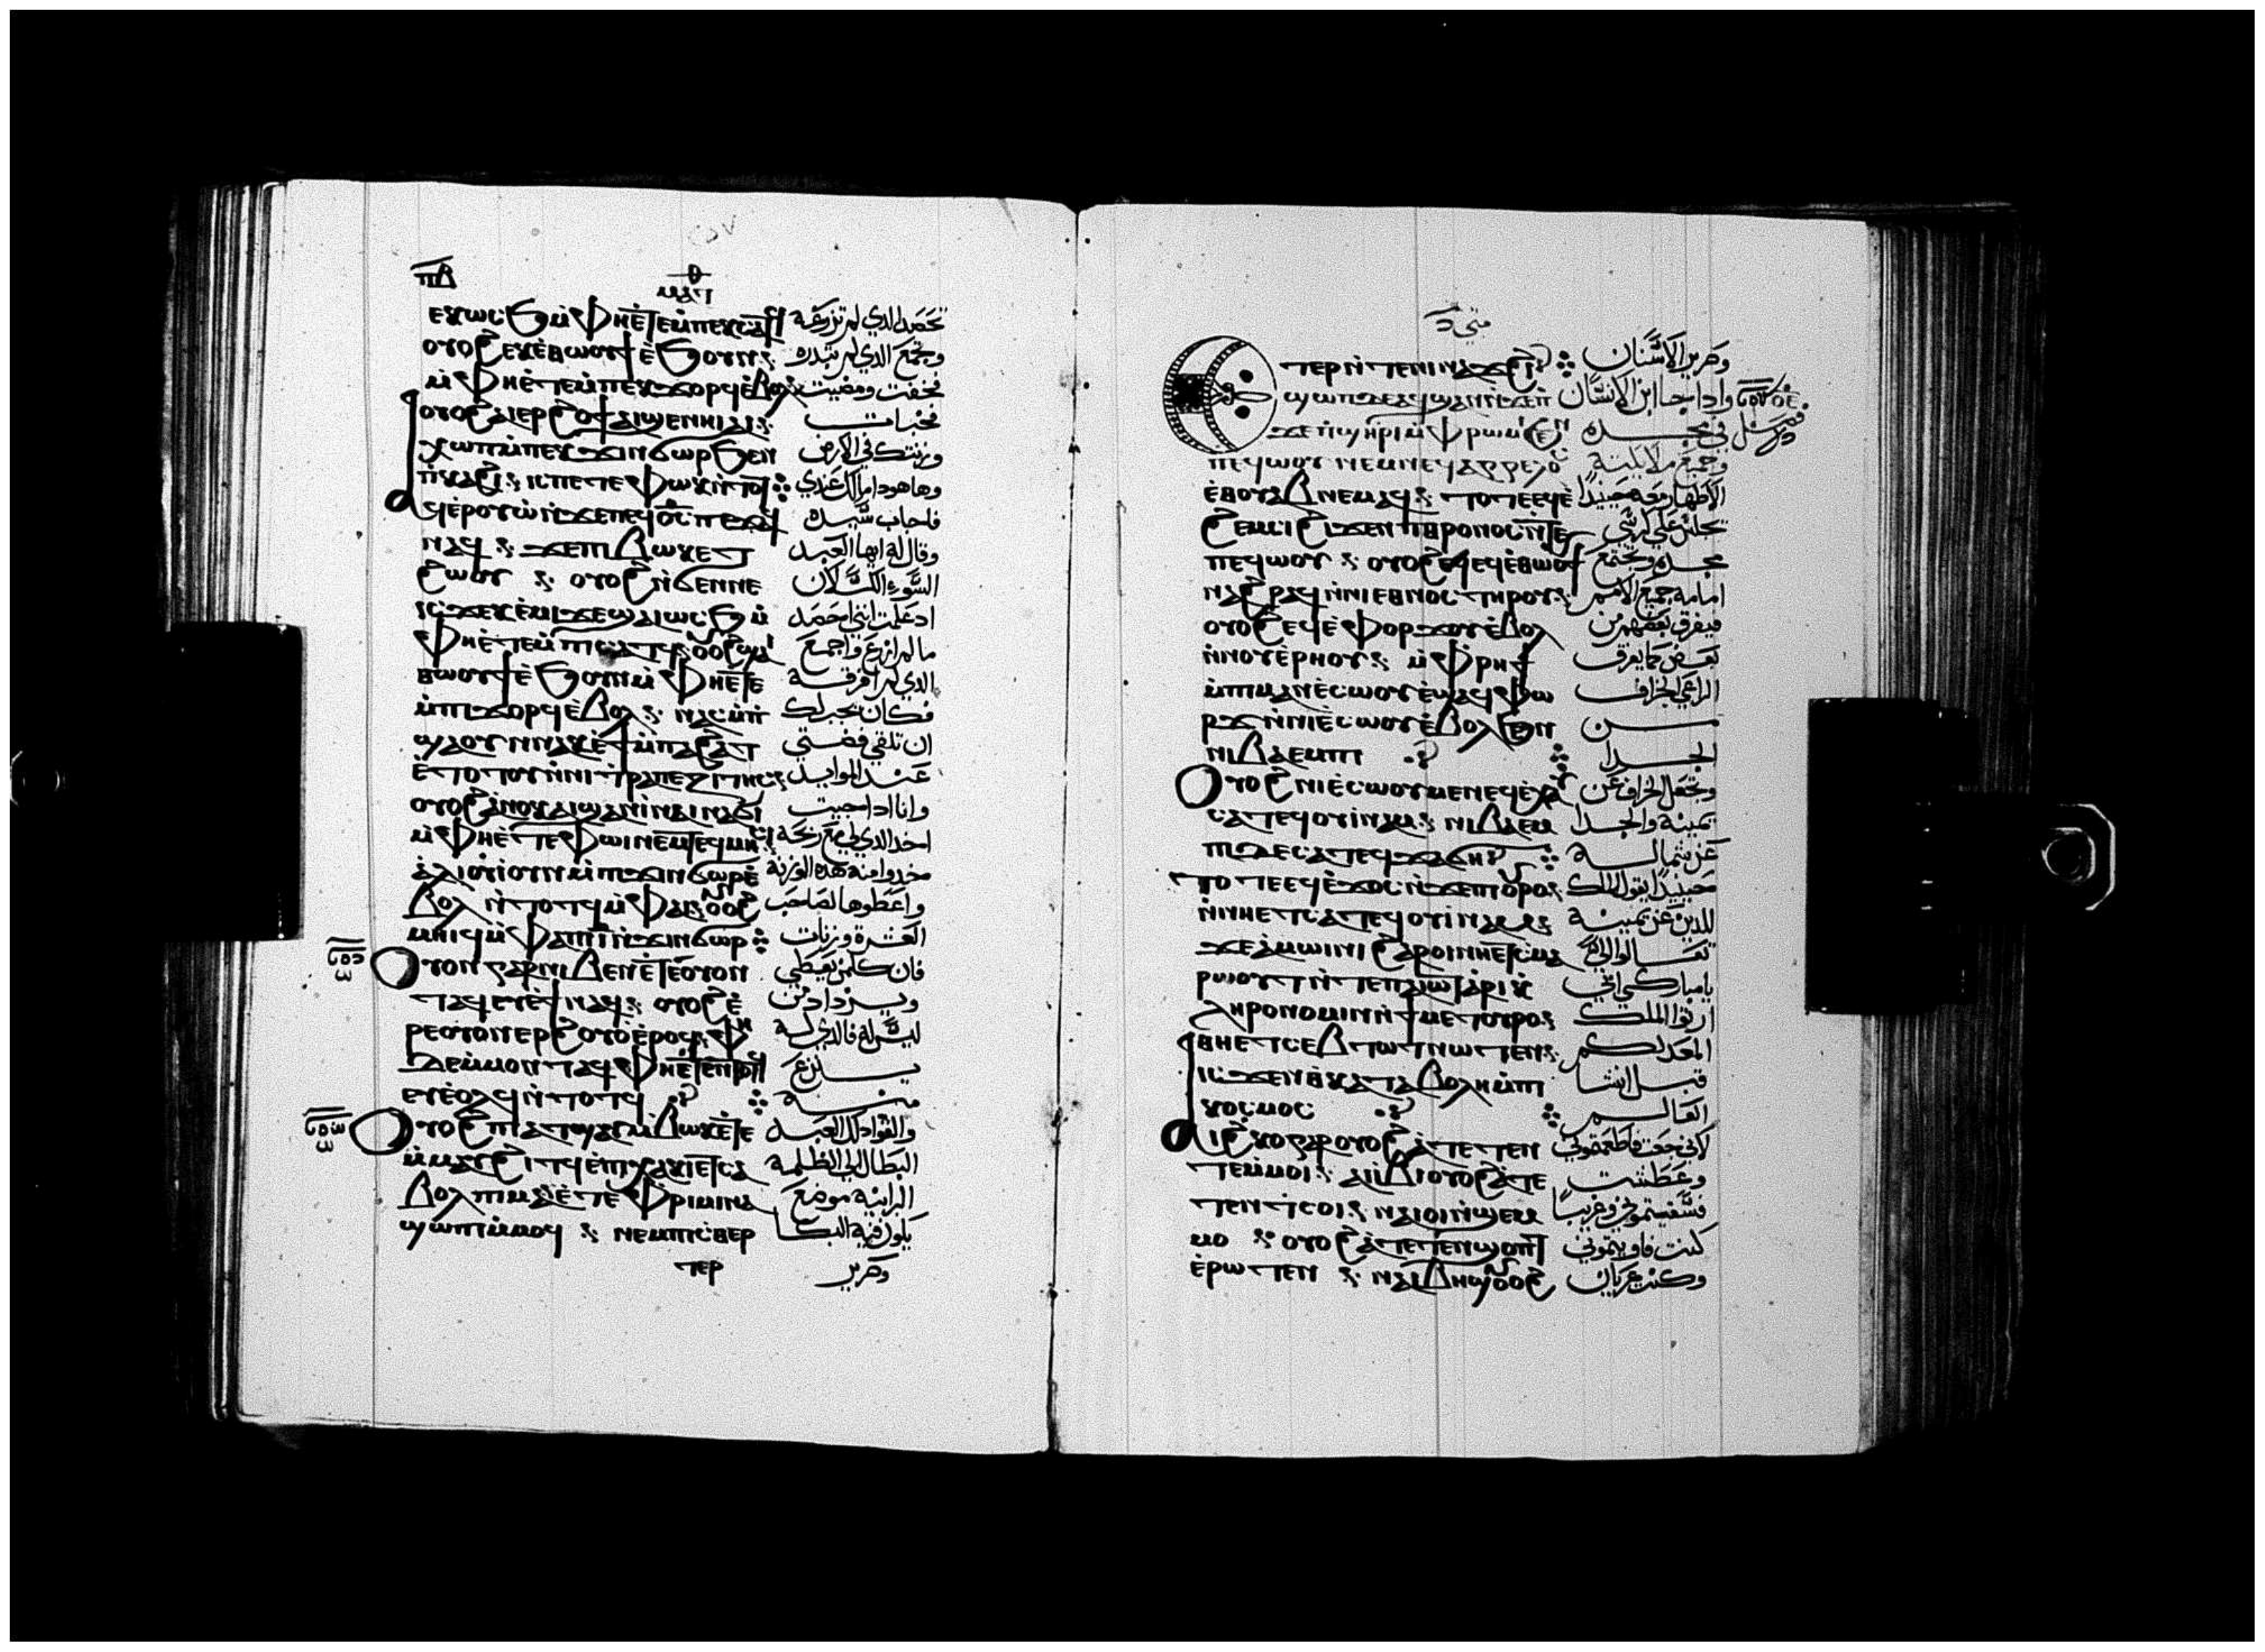 ⲡⲃ
ⲙⲁⲧ
ⲉⲕⲱⲥϧ ⲙ̀ⲫⲏⲉ̀ⲧⲉⲙ̀ⲡⲉⲕⲥⲁⲧϥ تحصد الدي لم تزرعه
ⲟⲩⲟϩ ⲉⲕⲉ̀ⲑⲱⲟⲩϯ ⲉ̀ϧⲟⲩⲛ وتجمع الدي لم تبدره
ⲙ̀ⲫⲏⲉ̀ⲧⲉⲙ̀ⲡⲉⲕϫⲟⲣϥ ⲉ̀ⲃⲟⲗ فخفت ومضيت
ⲟⲩⲟϩ ⲁⲓⲉⲣϩⲟϯ ⲁⲓϣⲉⲛⲏⲓ ⲁⲓ فخبات
ⲭⲱⲡ ⲙ̀ⲡⲉⲕϫⲓⲛϭⲱⲣ ϧⲉⲛ وزنتك في الارض
ⲡ̀ⲕⲁϩⲓ ⲓⲥ ⲡⲉⲧⲉ ⲫⲱⲕ ⲛ̀ⲧⲟⲧ وها هودا مالك عندي
ⲁϥⲉⲣⲟⲩⲱ̀ ⲛ̀ϫⲉ ⲡⲉϥⲟ̅ⲥ̅ ⲡⲉϫⲁϥ فاجاب سيده
ⲛⲁϥ ϫⲉ ⲡⲓⲃⲱⲕ ⲉⲧ وقال له ايها العبد
ϩⲱⲟⲩ ⲟⲩⲟϩ ⲛ̀ϭⲉⲛⲛⲉ السوء الكسلان
ⲓⲥϫⲉ ⲕⲉ̀ⲙⲓ ϫⲉ ϣⲁⲓⲱⲥϧ ⲙ̀ اد علمت انني احصد
ⲫⲏⲉ̀ⲧⲉⲙ̀ⲡⲓⲥⲁⲧϥ ⲟⲩⲟϩ ϣⲁⲓ ما لم ازرع واجمع
ⲑⲱⲟⲩϯ ⲉ̀ϧⲟⲩⲛ ⲙ̀ⲫⲏⲉ̀ⲧⲉ الدي لم افرقه
ⲙ̀ⲡⲓϫⲟⲣϥ ⲉ̀ⲃⲟⲗ ⲛⲁⲥⲙ̀ⲡ فكان يجب لك
ϣⲁ ⲟⲩⲛ ⲛⲁⲕ ⲉ̀ϯ ⲙ̀ⲡⲁϩⲁⲧ ان تلقي فضتي
ⲉ̀ⲧⲟⲧⲟⲩ ⲛ̀ⲛⲓⲧⲣⲁⲡⲉⲍⲓⲧⲏⲥ عند الموايد
ⲟⲩⲟϩ ⲁ̀ⲛⲟⲕ ⲁⲓϣⲁⲛⲓ̀ ⲛⲁⲓⲛⲁϭⲓ وانا ادا جيت
ⲙ̀ⲫⲏⲉ̀ⲧⲉ ⲫⲱⲓ ⲛⲉⲙ ⲧⲉϥⲙⲏⲥⲓ اخد الدي لي مع ربحه
ⲁ̀ⲗⲓⲟⲩⲓ̀ ⲟⲩⲛ ⲙ̀ⲡⲓϫⲓⲛϭⲱⲣ ⲉ̀ خدوا منه هده الوزنة
ⲃⲟⲗ ⲛ̀ⲧⲟⲧϥ ⲙ̀ⲫⲁⲓ ⲟⲩⲟϩ واعطوها لصاحب
ⲙⲏⲓϥ ⲙ̀ⲫⲁ ⲡⲓ̅ ⲛ̀ϫⲓⲛϭⲱⲣ العشرة وزنات
ⲟⲩⲟⲛ ⲅⲁⲣ ⲛⲓⲃⲉⲛ ⲉ̀ⲧⲉ ⲟ̀ⲩⲟⲛ فان كلمن يعطي
ⲧⲁϥ ⲉⲩⲉ̀ϯ ⲛⲁϥ ⲟⲩⲟϩ ⲉ̀ ويزداد ومن
ⲣⲉ ⲟ̀ⲩⲟⲛ ⲉⲣϩⲟⲩⲟ̀ ⲉ̀ⲣⲟϥ ⲫⲏ ليس له فالدي له
ⲇⲉ ⲙ̀ⲙⲟⲛ ⲧⲁϥ ⲫⲏⲉ̀ⲧⲉⲛⲧⲟⲧϥ ينزع
ⲉⲩⲉ̀ⲟⲗϥ ⲛ̀ⲧⲟⲧϥ منه
ⲟⲩⲟϩ ⲡⲓⲁⲧϣⲁⲩ ⲙ̀ⲃⲱⲕ ⲉ̀ⲧⲉ والقوا دلك العبد
ⲙ̀ⲙⲁⲩ ϩⲓⲧϥ ⲉ̀ⲡⲓⲭⲁⲕⲓ ⲉⲧⲥⲁ البطال الي الظلمة
ⲃⲟⲗ ⲡⲓⲙⲁ ⲉ̀ⲧⲉ ⲫⲣⲓⲙⲓ ⲛⲁ البرانية موضع
ϣⲱⲡⲓ ⲙ̀ⲙⲟϥ ⲛⲉⲙ ⲡⲓⲥⲑⲉⲣ يكون فيه البكا
ⲧⲉⲣ وصرير
متي
ⲧⲉⲣ ⲛ̀ⲧⲉ ⲛⲓⲛⲁϫϩⲓ وصرير الاسنان
ⲉϣⲱⲡ ⲇⲉ ⲁϥϣⲁⲛⲓ̀ ⲛ̀ϫⲉⲡ وادا جا ابن الانسان
ϫⲉ ⲡ̀ϣⲏⲣⲓ ⲙ̀ⲫⲣⲱⲙⲓ ϧⲉⲛ في مجده
ⲡⲉϥⲱⲟⲩ ⲛⲉⲙ ⲛⲉϥⲁⲅⲅⲉⲗⲟⲥ وجميع ملايكته
ⲉ̀ⲑⲟⲩⲁⲃ ⲛⲉⲙⲁϥ ⲧⲟⲧⲉ ⲉϥⲉ̀ الاطهار معه حينيدا
ϩⲉⲙⲥⲓ ϩⲓϫⲉⲛ ⲡⲓⲑⲣⲟⲛⲟⲥ ⲛ̀ⲧⲉ يجلس علي كرسي
ⲡⲉϥⲱⲟⲩ ⲟⲩⲟϩ ⲉϥⲉ̀ⲑⲱⲟⲩϯ مجده وتجتمع
ⲛⲁϩⲣⲁϥ ⲛ̀ⲛⲓⲉⲑⲛⲟⲥ ⲧⲏⲣⲟⲩ امامه جميع الامم
ⲟⲩⲟϩ ⲉϥⲉ̀ⲫⲟⲣϫⲟⲩ ⲉ̀ⲃⲟⲗ فيفرق بعضهم من
ⲛ̀ⲛⲟⲩⲉ̀ⲣⲏⲟⲩ ⲙ̀ⲫⲣⲏϯ بعض كما يفرق
ⲙ̀ⲡⲓⲙⲁⲛⲉ̀ⲥⲱⲟⲩ ⲉ̀ϣⲁϥⲫⲱ الراعي الخراف
ⲣϫ ⲛ̀ⲛⲓⲉ̀ⲥⲱⲟⲩ ⲉ̀ⲃⲟⲗ ϧⲉⲛ من
ⲛⲓⲃⲁⲉⲙⲡⲓ الجدا
ⲟⲩⲟϩ ⲛⲓⲉ̀ⲥⲱⲟⲩ ⲙⲉⲛ ⲉϥⲉ̀ⲭⲁⲩ ويجعل الخراف عن
ⲥⲁⲧⲉϥⲟⲩⲓ̀ⲛⲁⲙ ⲛⲓⲃⲁⲉⲙ يمينه والجدا
ⲡⲓ ⲇⲉ ⲥⲁⲧⲉϥϫⲁϭⲏ عن شماله
ⲧⲟⲧⲉ ⲉϥⲉ̀ϫⲟⲥ ⲛ̀ϫⲉ ⲡ̀ⲟⲩⲣⲟ حينيدا يقول الملك
ⲛ̀ⲛⲏⲉⲧⲥⲁⲧⲉϥⲟⲩⲓ̀ⲛⲁⲙ للدين عن يمينه
ϫⲉ ⲁ̀ⲙⲱⲓⲛⲓ ϩⲁⲣⲟⲓ ⲛⲏⲉⲧⲥⲙⲁ تعالوا الي
ⲣⲱⲟⲩⲧ ⲛ̀ⲧⲉ ⲡⲁⲓⲱⲧ ⲁ̀ⲣⲓⲕ يا مباركي ابي
ⲗⲏⲣⲟⲛⲟⲙⲓⲛ ⲛ̀ϯⲙⲉⲧⲟⲩⲣⲟ ارثوا الملك
ⲑⲏⲉⲧⲥⲉⲃⲧⲱⲧ ⲛⲱⲧⲉⲛ المعد لكم
ⲓⲥϫⲉⲛ ⲑ̀ⲕⲁⲧⲁⲃⲟⲗⲏ ⲙ̀ⲡⲓ قبل انشا
ⲕⲟⲥⲙⲟⲥ العالم
ⲁⲓϩⲕⲟ ⲅⲁⲣ ⲟⲩⲟϩ ⲁ̀ⲧⲉⲧⲉⲛ لاني جعت فاطعمتوني
ⲧⲉⲙⲙⲟⲓ ⲁⲓⲓ̀ⲃⲓ ⲟⲩⲟϩ ⲁ̀ⲧⲉ وعطشت
ⲧⲉⲛⲧⲥⲟⲓ ⲛⲁⲓⲟⲓ ⲛ̀ϣⲉⲙ فسقيتموني وغريبا
ⲙⲟ ⲟⲩⲟϩ ⲁ̀ⲧⲉⲧⲉⲛϣⲟⲡⲧ كنت فاويتموني
ⲉ̀ⲣⲱⲧⲉⲛ ⲛⲁⲓⲃⲏϣ ⲟⲩⲟϩ وكنت عريان